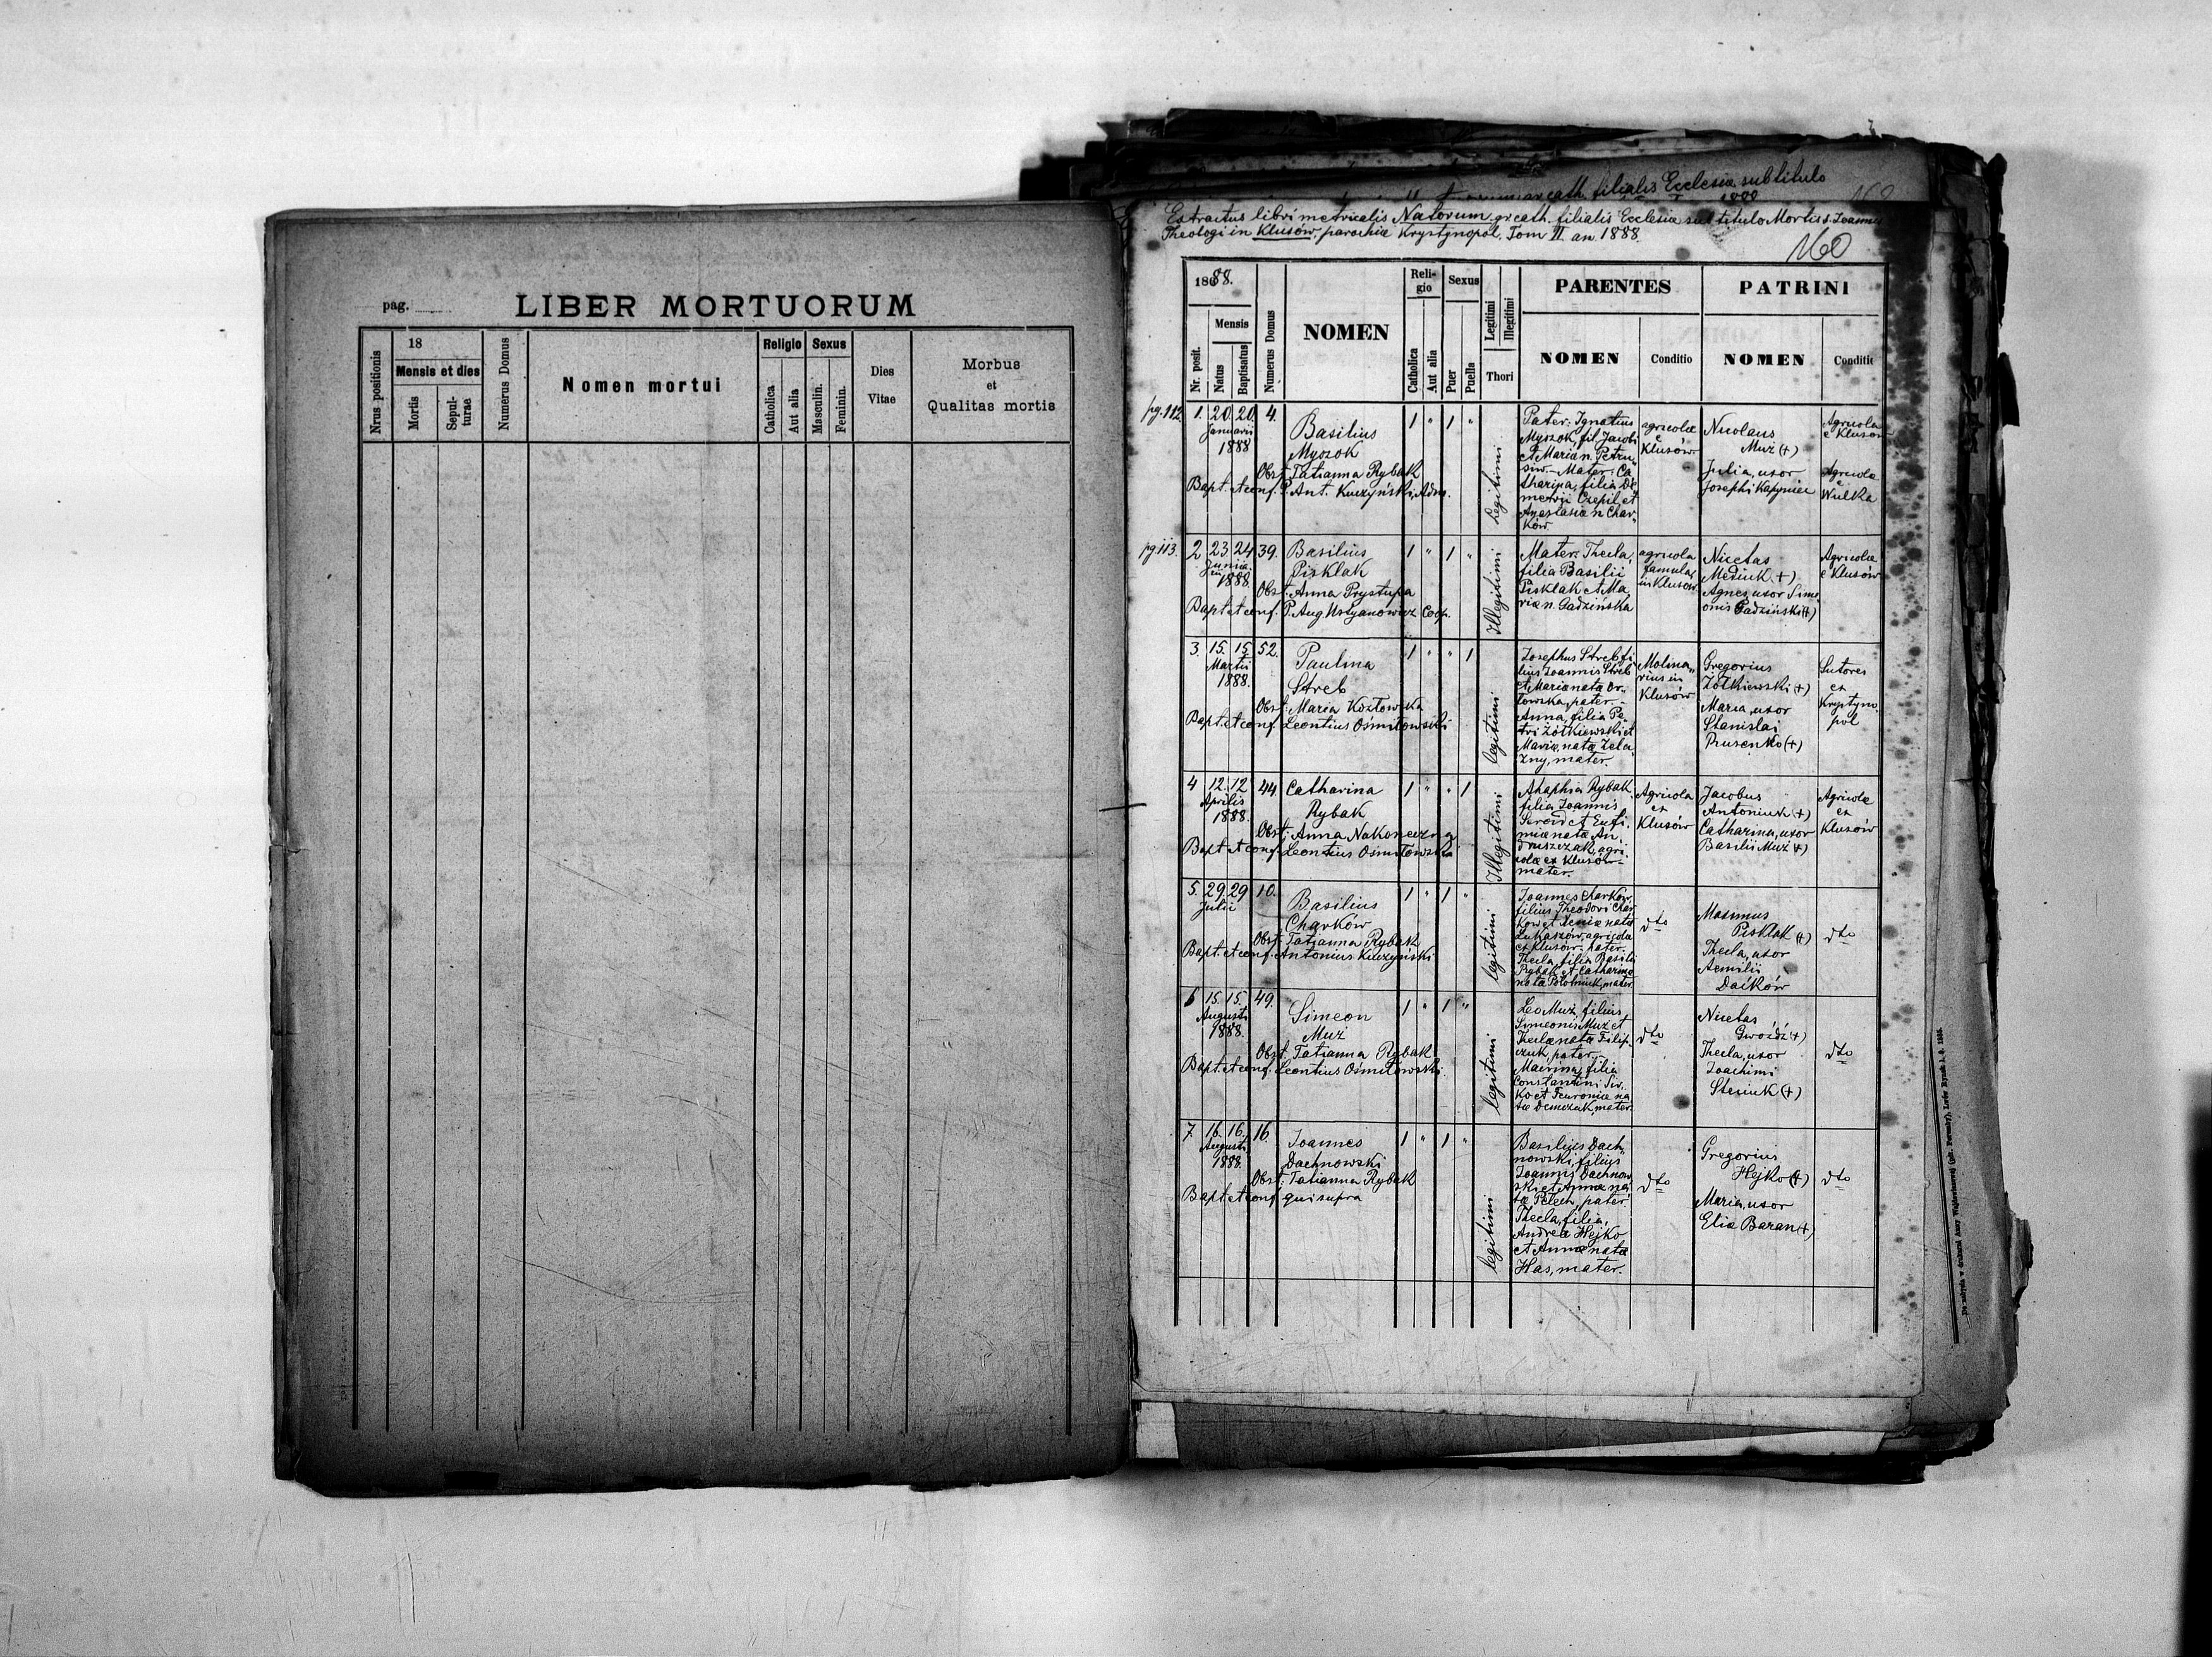 pag.
LIBER MORTUORUM
Nrus positionis
18
Mensis et dies
Mortis
Sepul-
turae
Numerus Domus
Nomen mortui
Religio
Catholica
Aut alia
Sexus
Masculin.
Feminin.
Dies
Vitae
Morbus
et
Qualitas mortis
cath. filialis Ecclesiæ sub titulo
Extractus libri metricalis Natorum gr cath. filialis Ecclesiæ sub titulo Mortis s. Joannis
Theologi in Klusów, parochiæ Krystynopol. Tom II an 1888.
160
1888.
Nr. posit.
Mensis
Natus
Baptisatus
Numerus Domus
NOMEN
Reli-
gio
Catholica
Aut alia
Sexus
Puer
Puella
Legitimi
Illegitimi
Thori
PARENTES
NOMEN
Conditio
PATRINI
NOMEN
Conditio
pg. 112.
1. 20. 20. 4.
Januarii
1888
Basilius
Myszok
Obst. Tatianna Rybak
Bapt. et conf. P. Ant. Kuczyński, Adm.
1 " 1 "
Legitimi
Pater: Ignatius
Myszok, fil. Jacobi
et Mariæ n. Petru„
siw.- Mater: Ca
tharina, filia De
metrii Czepil et
Anastasiæ n Char„
ków.
agricolæ
e
Klusów
Nicolaus
Muż (+)
Julia, uxor
Josephi Kapyniec
Agricola
e Klusów
Agricolæ
e
Wulka
pg 113.
2 23 24 39.
Junii
1888
Basilius
Pisklak
Obst. Anna Prystupa
Bapt. et conf. P. Aug. Ustyanowicz Coop.
1 " 1 "
Illegitimi
Mater: Thecla,
filia Basilii
Pisklak et Ma
riæ n. Gadzińska
agricola
famula
in Klusów
Nicetas
Mediuk (+)
Agnes, uxor Sime
onis Gadziński (+)
Agricolæ
e Klusów
3. 15. 15. 52.
Martii
1888.
Paulina
Streb
Obst. Maria Kozłowska
Bapt. et conf. Leontius Ośmiłowski
1 " " 1
legitimi
Josephus Streb fi
lius Joannis Streb
et Mariæ nata Or
łowska, pater.-
Anna, filia Pe
tri Żółkiewski et
Mariæ, natæ Żela
zny, mater.
Molina„
rius in
Klusów
Gregorius
Żółkiewski (+)
Maria, uxor
Stanislai
Prusenko (+)
Sutores
ex
Krystyno
pol
4 12. 12 44.
Aprilis
1888.
Catharina
Rybak
Obst. Anna Nakoneczna
Bapt. et conf. Leontius Ośmiłowski
1 " " 1
Illegitimi
Ahaphia Rybak
filia Joannis
et Eufi„
miæ natæ An„
druszczak, agri
colæ ex Klusów-
mater.
Agricola
ex
Klusów
Jacobus
Antoniuk (+)
Catharina, uxor
Basilii Muż (+)
Agricolæ
ex
Klusów
5. 29. 29 10.
Julii
Basilius
Charków
Obst. Tatianna Rybak
Bapt. et conf. Antonius Kuczyński
1 " 1 "
legitimi
Joannes Charków
filius Theodori Char
ków et Xeniæ natæ
Lukaszów, agricola
ex Klusów- pater.
Thecla, filia Basilii
Rybak et Catharinæ
mater
dto
Maximus
Pisklak (+)
Thecla, uxor
Aemilii
Daćków
dto
6 15. 15. 49.
Augusti
1888.
Simeon
Muż
Obst. Tatianna Rybak
Bapt. et conf. Leontius Ośmiłowski.
1 " 1 "
legitimi
Leo Muż, filius
Simeonis Muż et
Theclæ natæ Filip„
czuk, pater.-
Marina, filia
Constantini Siv„
ko et Feuroniæ na
tæ Demczuk, mater.
dto
Nicetas
Gwóźdź (+)
Thecla, uxor
Joachimi
Steciuk (+)
dto
7. 16. 16. 16.
Augusti
1888.
Joannes
Dachnowski
Obst. Tatianna Rybak
Bapt. et conf. qui supra
1 " 1 "
legitimi
Basilius Dach„
nowski, filius
Joannis Dachnow„
ski et Annæ na„
tæ Pelech, pater.
Thecla, filia,
Andreæ Hejko
et Annæ natæ
Has, mater.
dto
Gregorius
Hejko (+)
Maria, uxor
Eliæ Baran (+)
dto